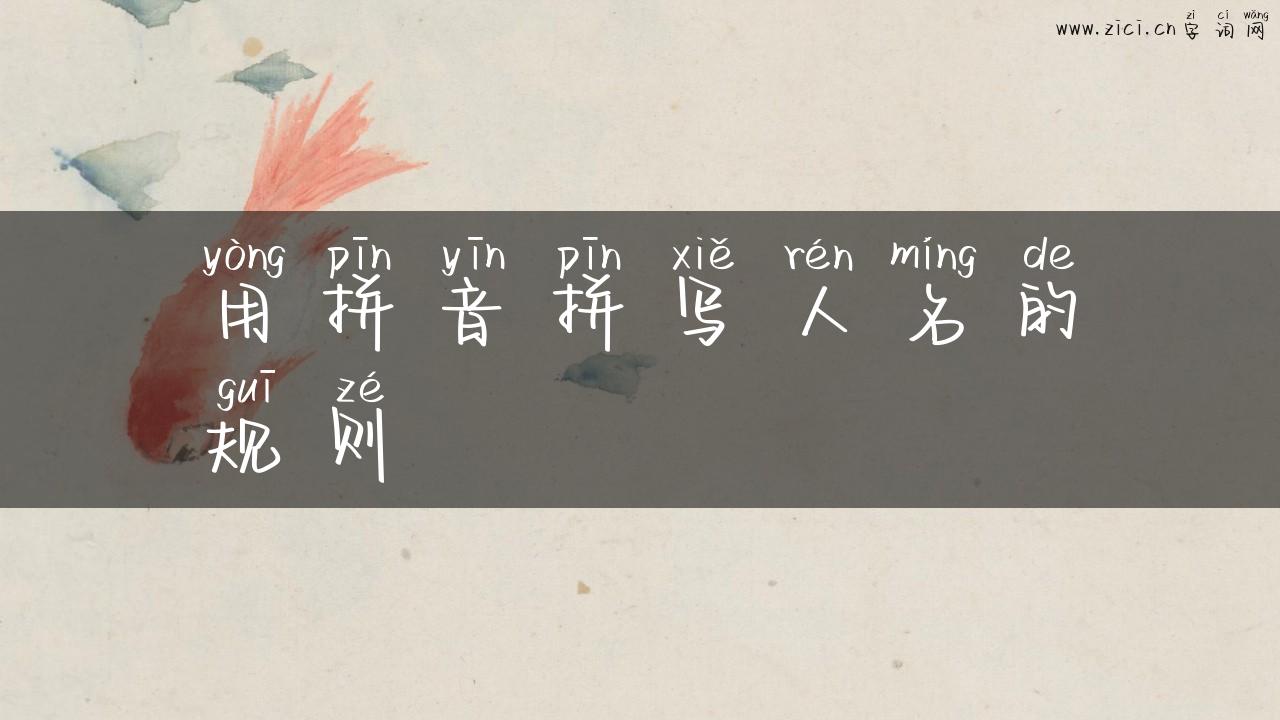 zì cí wǎng
www.zici.cn 字 词 网
yòng pīn yīn pīn xiě rén míng de
用 拼 音 拼 写 人 名 的
guī zé
规 则